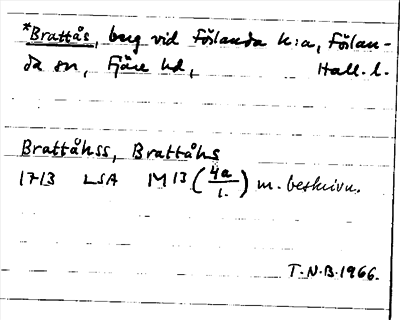 *Brattås, berg vid Förlanda k:a, Förlan-
da sn, Fjäre hd, Hall. l.
Brattåhss, Brattåhs
1713 LSA M 13 (4a/1.) m. beskrivn.
T.N.B. 1966.